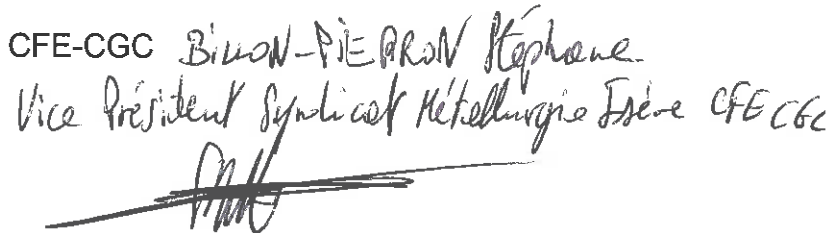 CFE-CGC BILLON-PIERRON Stéphane
Vice Président Syndicat Métallurgie Isère CFE CGC